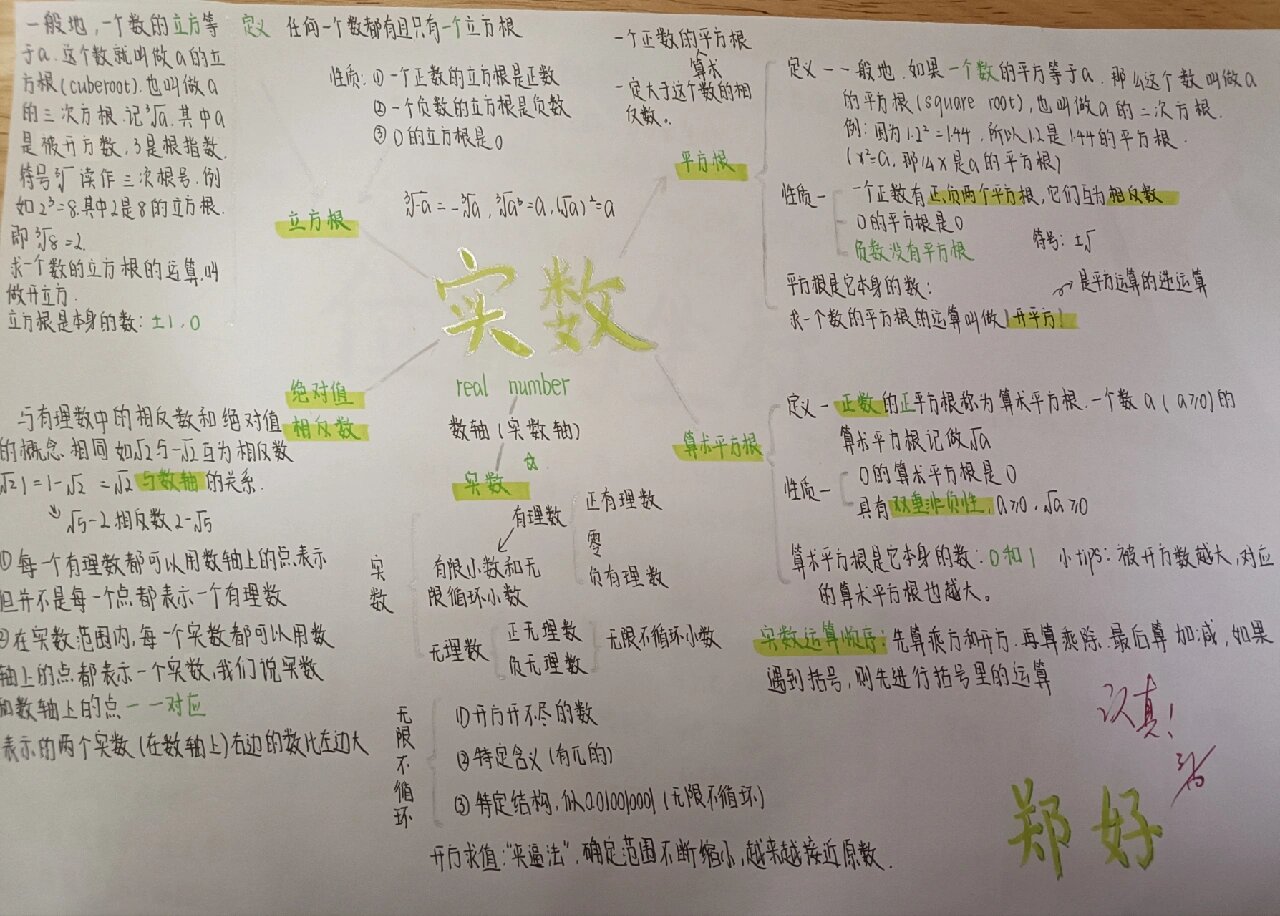 一般地,一个数的立方等
于a.这个数就叫做a的立
方根(cuberoot).也叫做a
的三次方根.记∛a.其中a
是被开方数,3是根指数.
符号∛读作三次根号.例
如2³=8.其中2是8的立方根.
即∛8=2.
求一个数的立方根的运算.叫
做开立方.
立方根是本身的数:±1、0
定义 任何一个数都有且只有一个立方根
性质:①一个正数的立方根是正数
②一个负数的立方根是负数
③0的立方根是0
立方根
∛-a=-∛a,∛a³=a,(∛a)³=a
一个正数的平方根
算术
一定大于这个数的相
反数。
平方根
定义一一般地.如果一个数的平方等于a.那么这个数叫做a
的平方根(square root),也叫做a的二次方根.
例:因为1.2²=1.44,所以1.2是1.44的平方根.
(x²=a,那么x是a的平方根)
性质一 一个正数有正、负两个平方根,它们互为相反数
0的平方根是0
负数没有平方根
符号:±√
平方根是它本身的数:
是平方运算的逆运算
求一个数的平方根的运算叫做开平方!
实数
real number
数轴(实数轴)
绝对值
相反数
与有理数中的相反数和绝对值
的概念.相同如√2与-√2互为相反数
√2|=|-√2 =√2 与数轴的关系.
√5-2相反数2-√5
①每一个有理数都可以用数轴上的点表示
但并不是每一个点都表示一个有理数
②在实数范围内,每一个实数都可以用数
轴上的点都表示一个实数,我们说实数
和数轴上的点一一对应
表示的两个实数(在数轴上)右边的数比左边大
实数
实数
有理数
正有理数
零
负有理数
有限小数和无
限循环小数
无理数
正无理数
负无理数
无限不循环小数
无限不循环
(1)开方开不尽的数
(2)特定含义(有π的)
(3)特定结构,似0.010010001(无限不循环)
开方求值:“夹逼法”,确定范围不断缩小,越来越接近原数.
算术平方根
定义一正数的正平方根称为算术平方根.一个数a(a≥0)的
算术平方根记做√a
性质一
0的算术平方根是0
具有双重非负性,a≥0.√a≥0
算术平方根是它本身的数:0和1 小tips:被开方数越大,对应
的算术平方根也越大。
实数运算顺序:先算乘方和开方.再算乘除.最后算加减,如果
遇到括号,则先进行括号里的运算
认真!
郑好